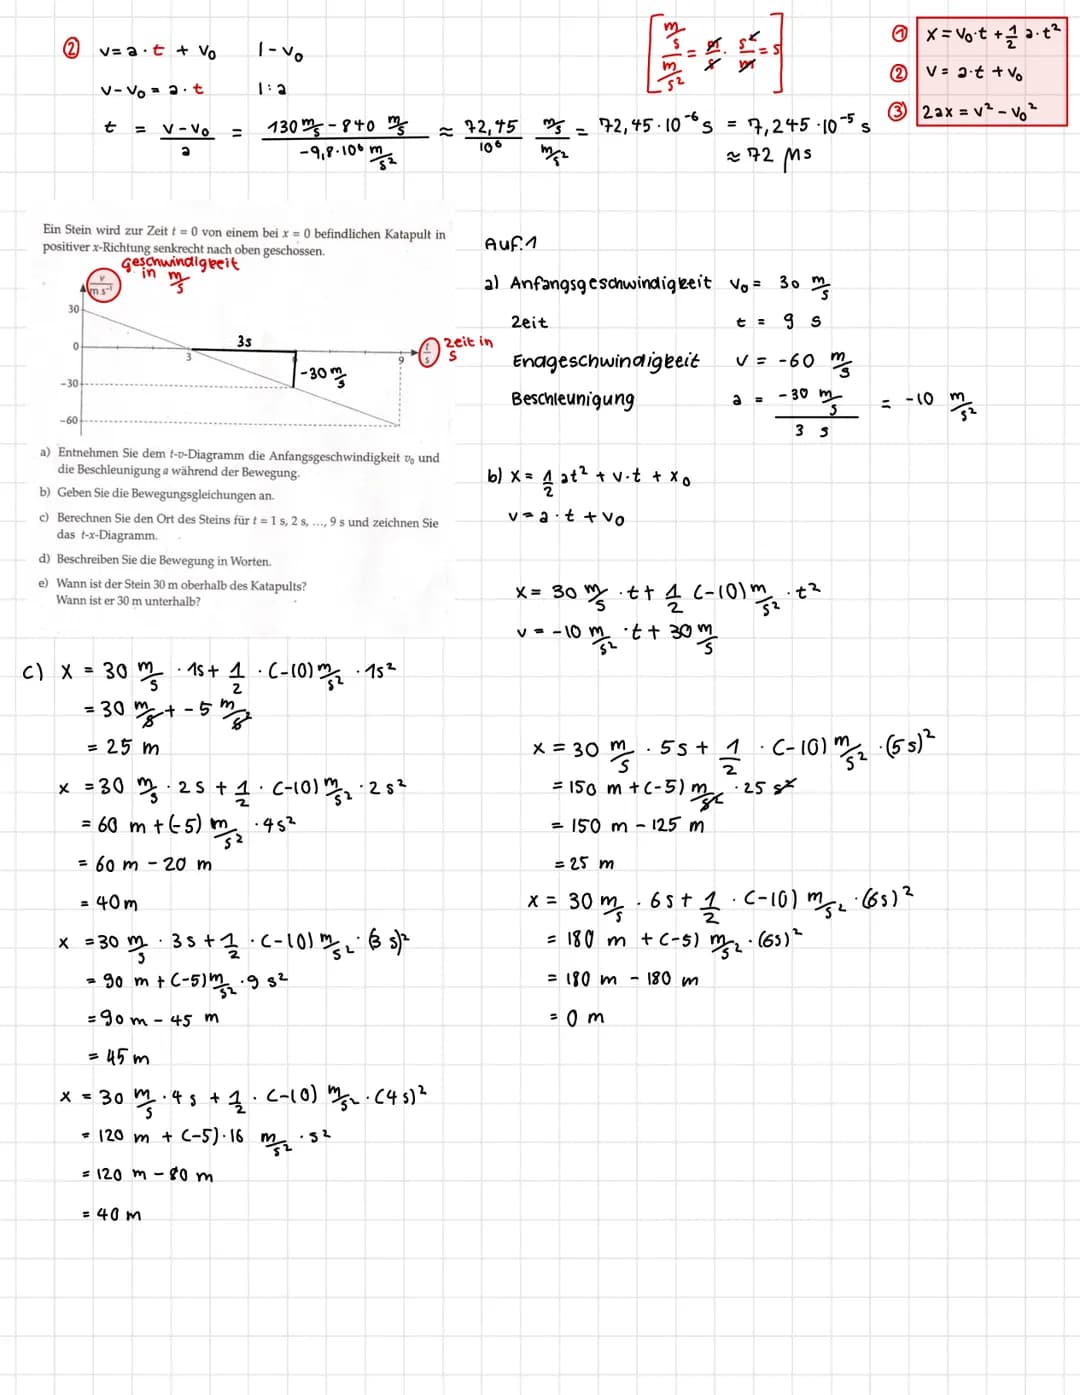 ② v = a · t + v₀ | - v₀
v - v₀ = a · t | : a
t = (v - v₀)/a = (130 m/s - 840 m/s)/(-9,8 · 10⁶ m/s²) ≈ 72,45/10⁶ (m/s)/(m/s²) = 72,45 · 10⁻⁶ s = 7,245 · 10⁻⁵ s
≈ 72 μs
[(m/s)/(m/s²) = m/s · s²/m = s]
① x = v₀ · t + 1/2 a · t²
② v = a · t + v₀
③ 2ax = v² - v₀²
Ein Stein wird zur Zeit t = 0 von einem bei x = 0 befindlichen Katapult in
positiver x-Richtung senkrecht nach oben geschossen.
Geschwindigkeit
in m/s
v/m s⁻¹
30
0
-30
-60
3
9
3s
-30 m/s
t/s
Zeit in
s
a) Entnehmen Sie dem t-v-Diagramm die Anfangsgeschwindigkeit v₀ und
die Beschleunigung a während der Bewegung.
b) Geben Sie die Bewegungsgleichungen an.
c) Berechnen Sie den Ort des Steins für t = 1 s, 2 s, ..., 9 s und zeichnen Sie
das t-x-Diagramm.
d) Beschreiben Sie die Bewegung in Worten.
e) Wann ist der Stein 30 m oberhalb des Katapults?
Wann ist er 30 m unterhalb?
Auf.1
a) Anfangsgeschwindigkeit v₀ = 30 m/s
Zeit t = 9 s
Endgeschwindigkeit v = -60 m/s
Beschleunigung a = (-30 m/s)/(3 s) = -10 m/s²
b) x = 1/2 at² + v·t + x₀
v = a · t + v₀
x = 30 m/s · t + 1/2 (-10) m/s² · t²
v = -10 m/s² · t + 30 m/s
c) x = 30 m/s · 1s + 1/2 · (-10) m/s² · 1s²
= 30 m/s + -5 m/s²
= 25 m
x = 30 m/s · 2s + 1/2 · (-10) m/s² · 2s²
= 60 m + (-5) m/s² · 4s²
= 60 m - 20 m
= 40 m
x = 30 m/s · 3s + 1/2 · (-10) m/s² · (3 s)²
= 90 m + (-5) m/s² · 9 s²
= 90 m - 45 m
= 45 m
x = 30 m/s · 4 s + 1/2 · (-10) m/s² · (4 s)²
= 120 m + (-5) · 16 m/s² · s²
= 120 m - 80 m
= 40 m
x = 30 m/s · 5s + 1/2 · (-10) m/s² · (5 s)²
= 150 m + (-5) m/s² · 25 s²
= 150 m - 125 m
= 25 m
x = 30 m/s · 6s + 1/2 · (-10) m/s² · (6s)²
= 180 m + (-5) m/s² · (6s)²
= 180 m - 180 m
= 0 m